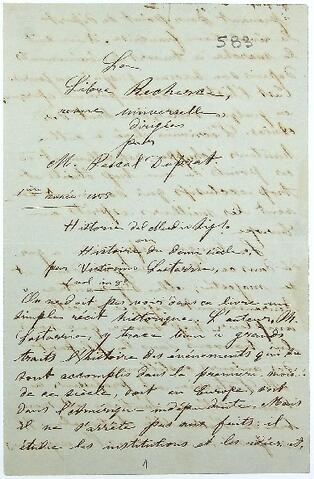 583
La
Libre Recherche,
revue universelle
dirigée
par
M. Pascal Duprat
1ière année 1855
Historia del Medio Siglo
ou
Histoire du demi siècle,
par Victorino Lastarria,
1 vol in 8º
On ne doit pas voir dans ce livre un
simple récit historique. L'auteur, M.
Lastarria, y trace bien à grands
traits l'histoire des événements qui se
sont accomplis dans la première moitié
de ce siècle, soit en Europe, soit
dans l'Amérique indépendante. Mais
il ne s'arrête pas aux faits: il
étudie les institutions et les idées, et,
1